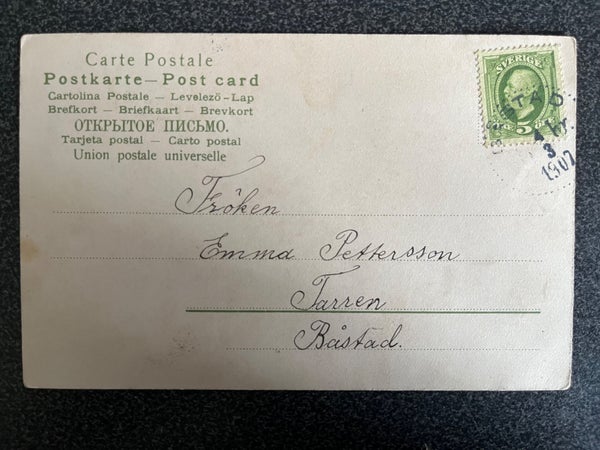 Carte Postale
Postkarte — Post card
Cartolina Postale — Levelező-Lap
Brefkort — Briefkaart — Brevkort
ОТКРЫТОЕ ПИСЬМО.
Tarjeta postal — Carto postal
Union postale universelle
SVERIGE
5
BÅSTAD
4 br.
3
1907
Fröken
Emma Pettersson
Tarren
Båstad.